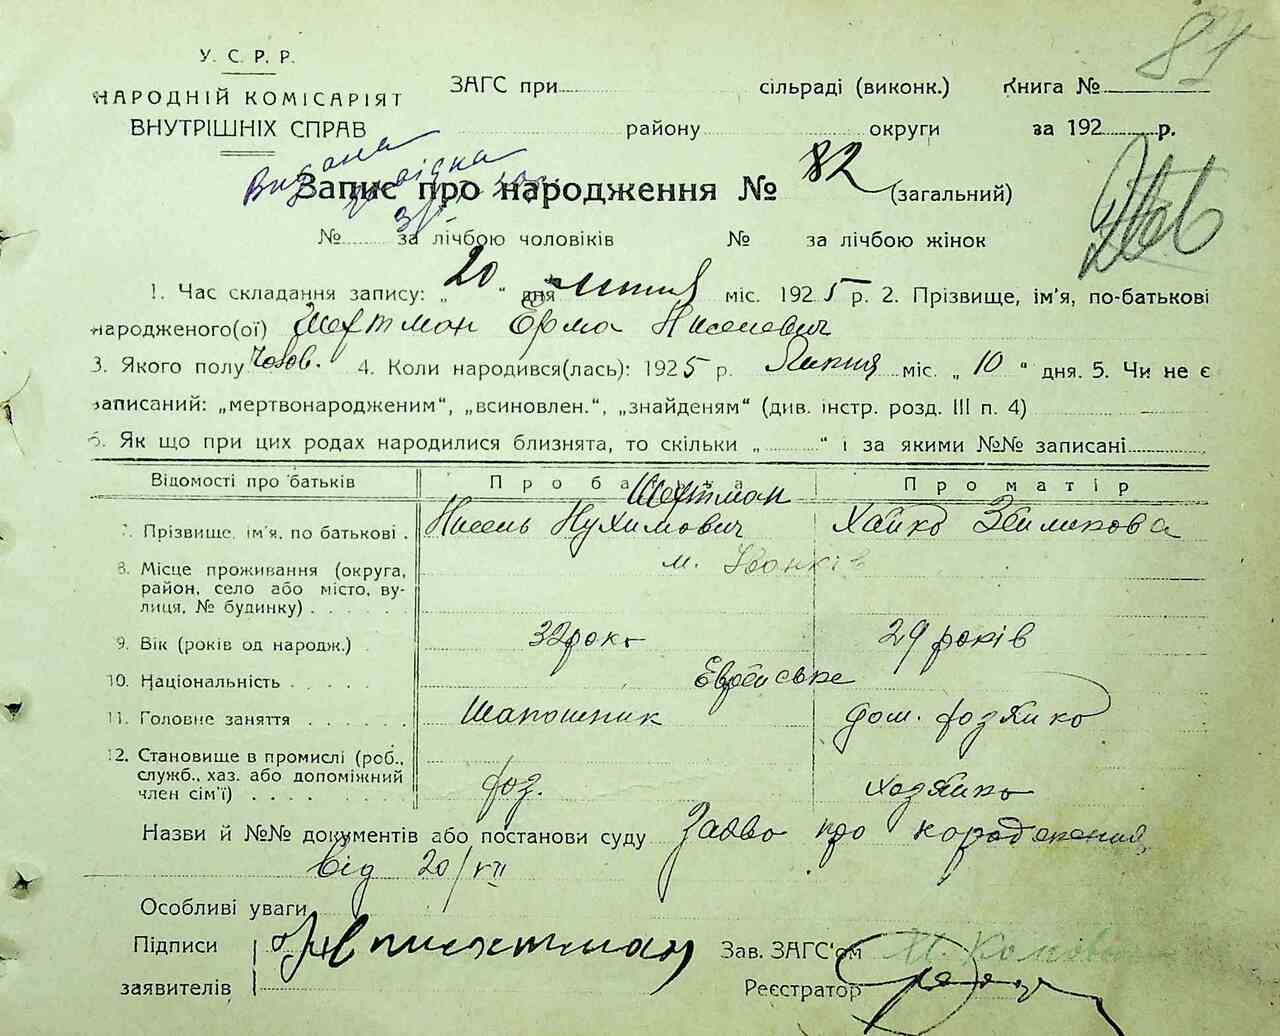 87
У. С. Р. Р.
НАРОДНІЙ КОМІСАРІЯТ
ВНУТРІШНІХ СПРАВ
ЗАГС при сільраді (виконк.) Книга №
району округи за 192 р.
Видана
Запис про народження № 82 (загальний)
№ за лічбою чоловіків № за лічбою жінок
1. Час складання запису: „ 20 “ дня липня міс. 1925 р. 2. Прізвище, ім'я, по-батькові
народженого(ої) Шехтман Ерма Ниселевич
3. Якого полу Чолов. 4. Коли народився(лась): 1925 р. Липня міс. „ 10 “ дня. 5. Чи не є
записаний: „мертвонародженим“, „всиновлен.“, „знайденям“ (див. інстр. розд. III п. 4)
6. Як що при цих родах народилися близнята, то скільки „ “ і за якими №№ записані
Відомості про батьків Про батька Про матір
Шехтман
7. Прізвище, ім'я, по батькові . Нисель Нухимович Хайка
8. Місце проживання (округа, м. Іванків
район, село або місто, ву-
лиця, № будинку) . . . . .
9. Вік (років од народж.) . 32 рок. 29 років
10. Національність . . . . . Еврейське
11. Головне заняття . . . . . . Шапошник Дом. хозяйка
12. Становище в промислі (роб.,
служб., хаз. або допоміжний
член сім'ї) . . . . . хоз. хазяйка
Назви й №№ документів або постанови суду Заява про народження
від 20/VII
Особливі уваги
Підписи Зав. ЗАГС'ом
заявителів Реєстратор